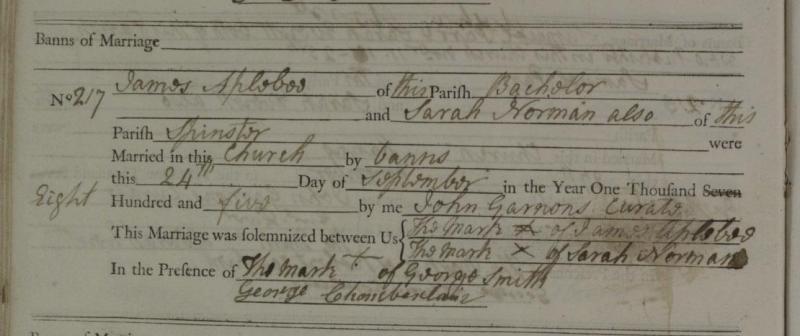 Banns of Marriage
No 217 James Aplebee of this Parish Bachelor
and Sarah Norman also of this
Parish Spinster were
Married in this Church by banns
this 24th Day of September in the Year One Thousand Seven
Eight Hundred and five by me John Garnons Curate
This Marriage was solemnized between Us { The Mark X of James Aplebee
The Mark X of Sarah Norman
In the Presence of The Mark + of George Smith
George Chamberlain